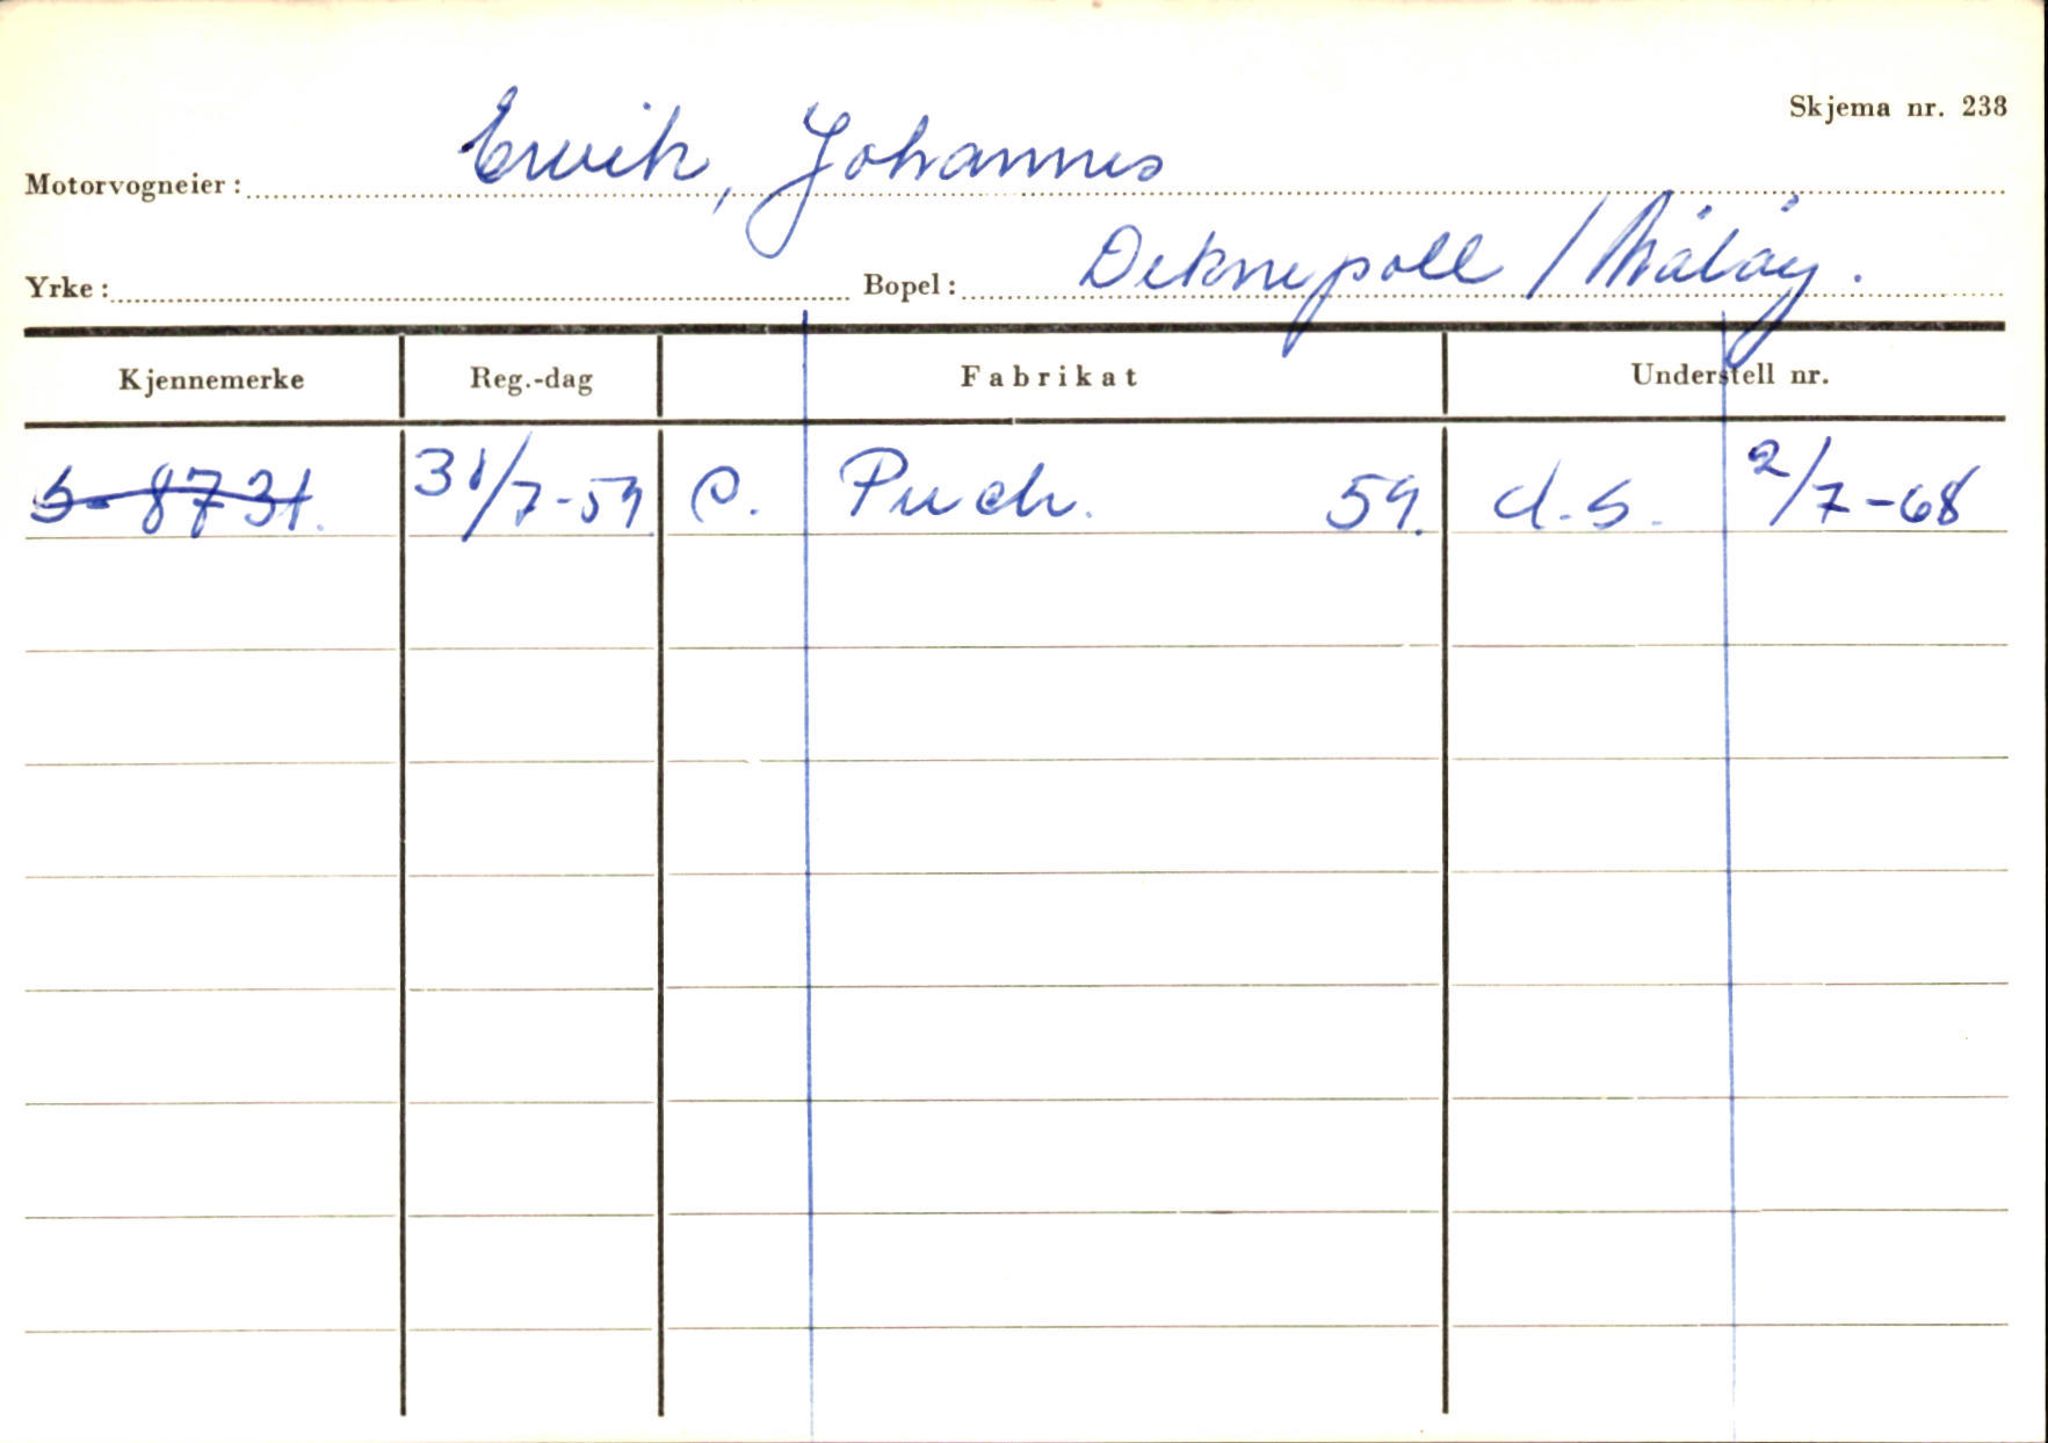 Skjema nr. 238
Motorvogneier: Ervik, Johannes
Yrke: Bopel: Deknepoll / Måløy.
Kjennemerke Reg.-dag Fabrikat Understell nr.
S-8731. 31/7-59. C. Puch. 59. d.s. 2/7-68